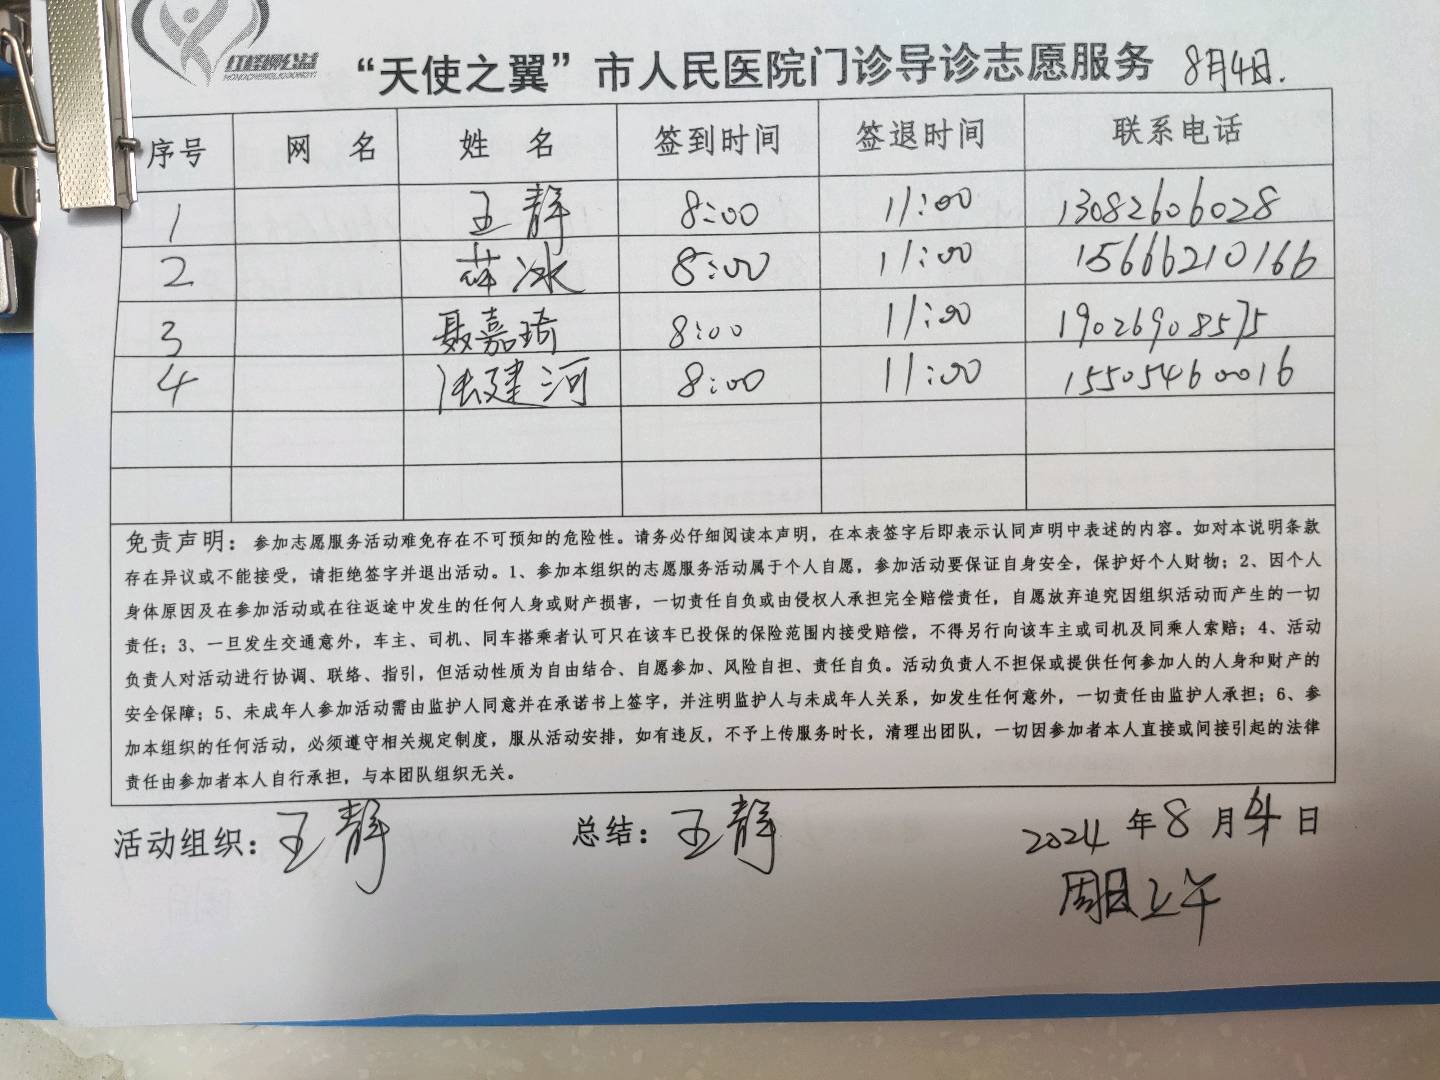 红橙公益
HONGCHENGGONGYI
“天使之翼”市人民医院门诊导诊志愿服务 8月4日.
序号 网 名 姓 名 签到时间 签退时间 联系电话
1 王静 8:00 11:00 13082606028
2 薛冰 8:00 11:00 15666210166
3 聂嘉琦 8:00 11:00 19026908575
4 张建河 8:00 11:00 15505460016
免责声明：参加志愿服务活动难免存在不可预知的危险性。请务必仔细阅读本声明，在本表签字后即表示认同声明中表述的内容。如对本说明条款
存在异议或不能接受，请拒绝签字并退出活动。1、参加本组织的志愿服务活动属于个人自愿，参加活动要保证自身安全，保护好个人财物；2、因个人
身体原因及在参加活动或在往返途中发生的任何人身或财产损害，一切责任自负或由侵权人承担完全赔偿责任，自愿放弃追究因组织活动而产生的一切
责任；3、一旦发生交通意外，车主、司机、同车搭乘者认可只在该车已投保的保险范围内接受赔偿，不得另行向该车主或司机及同乘人索赔；4、活动
负责人对活动进行协调、联络、指引，但活动性质为自由结合、自愿参加、风险自担、责任自负。活动负责人不担保或提供任何参加人的人身和财产的
安全保障；5、未成年人参加活动需由监护人同意并在承诺书上签字，并注明监护人与未成年人关系，如发生任何意外，一切责任由监护人承担；6、参
加本组织的任何活动，必须遵守相关规定制度，服从活动安排，如有违反，不予上传服务时长，清理出团队，一切因参加者本人直接或间接引起的法律
责任由参加者本人自行承担，与本团队组织无关。
活动组织：王静 总结：王静 2024 年 8 月 4 日
周日上午